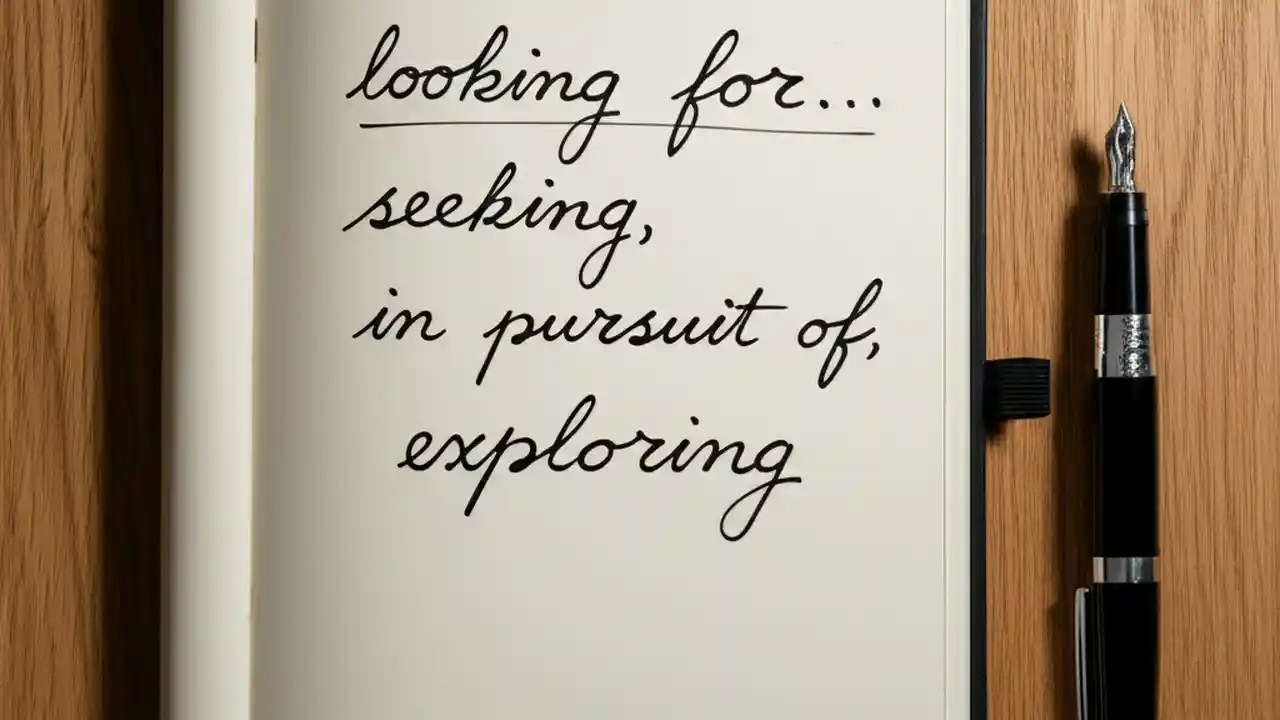 looking for...
seeking,
in pursuit of,
exploring